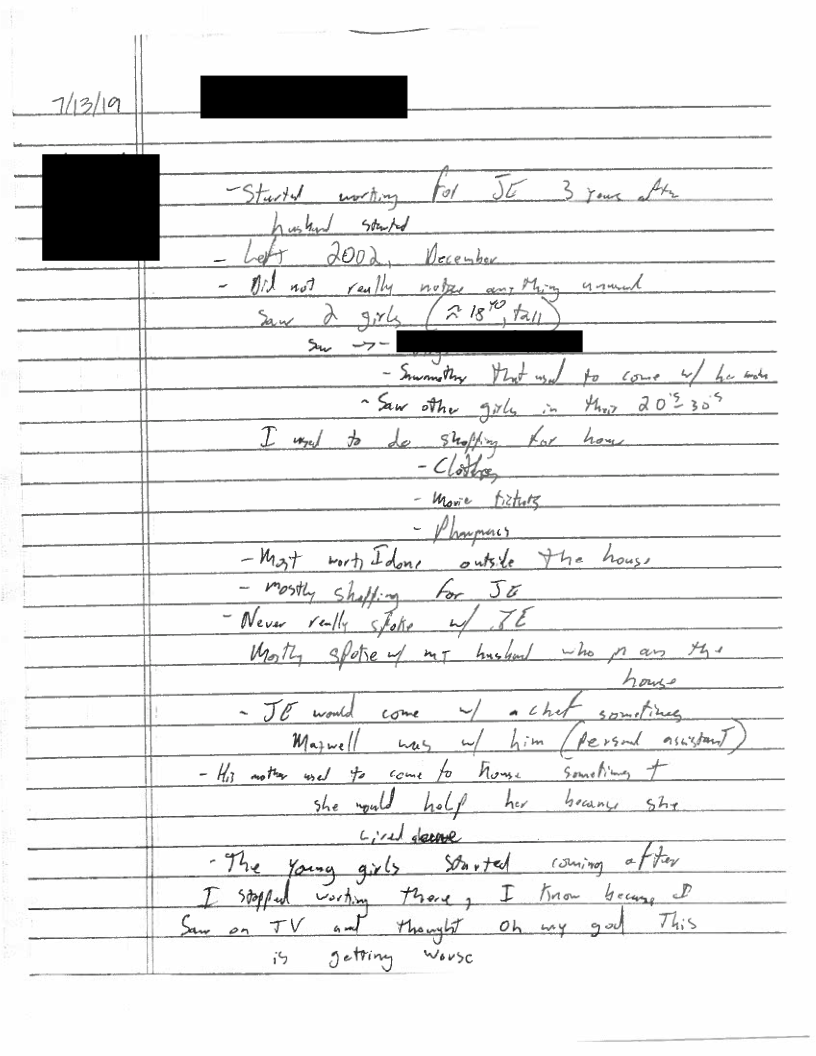 7/13/19
- Started working for JE 3 years after
husband started
- Left 2002, December
- Did not really notice anything unusual
Saw 2 girls (≈ 18 yo, tall)
Saw → -
- that used to come w/ her
- Saw other girls in their 20's - 30's
I used to do shopping for house
- Clothes
- Movie tickets
-
- Most work I done outside the house
- Mostly shopping for JE
- Never really spoke w/ JE
Mostly spoke w/ my husband who ran the
house
- JE would come w/ a chef sometimes
Maxwell was w/ him (personal assistant)
- His mother used to come to house sometimes +
she would help her because she
Lived
- The young girls started coming after
I stopped working there, I know because I
Saw on TV and thought oh my god This
is getting worse